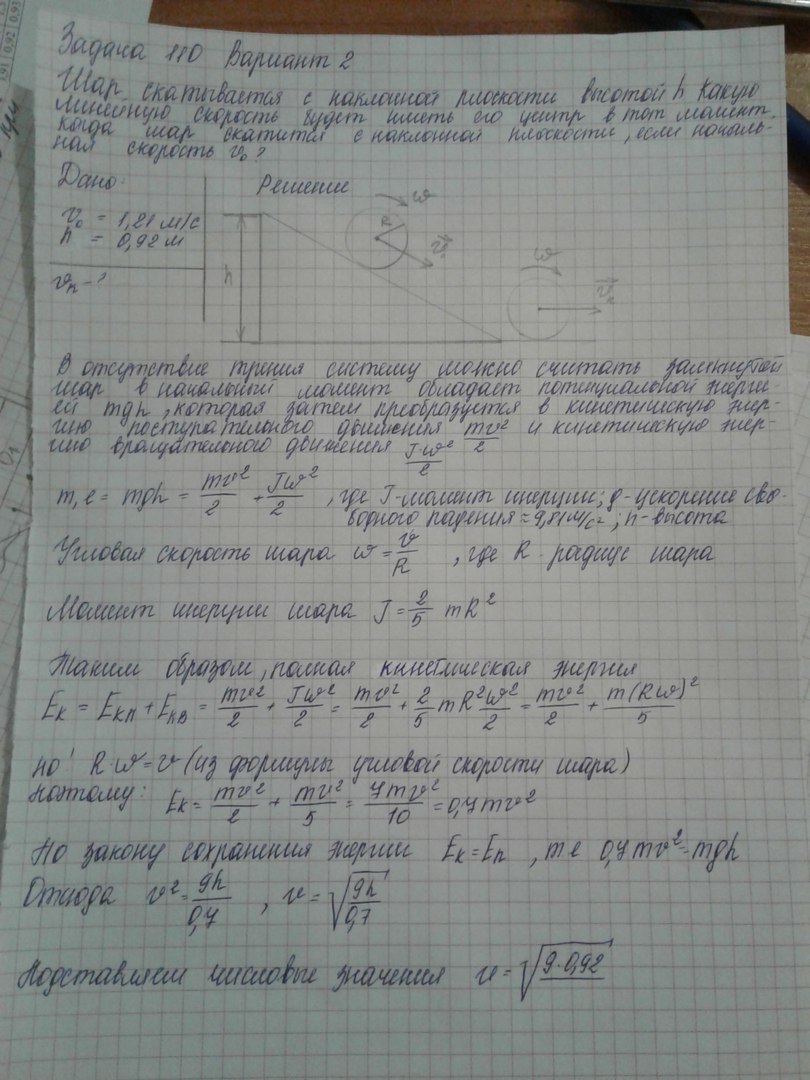 0,91 0,92 0,93
Задача 110 Вариант 2
Шар скатывается с наклонной плоскости высотой h. Какую
линейную скорость будет иметь его центр в тот момент,
когда шар скатится с наклонной плоскости, если началь-
ная скорость v₀?
Дано: Решение
v₀ = 1,21 м/с
h = 0,92 м
vₙ - ?
h R ω v⃗₀ ω v⃗ₙ
В отсутствие трения систему можно считать замкнутой
шар в начальный момент обладает потенциальной энерги-
ей mgh, которая затем преобразуется в кинетическую энер-
гию поступательного движения mv²/2 и кинетическую энер-
гию вращательного движения Jω²/2
т,е = mgh = mv²/2 + Jω²/2 , где J-момент инерции; g-ускорение сво-
бодного падения ≈ 9,81м/с²; h-высота
Угловая скорость шара ω = v/R , где R - радиус шара
Момент инерции шара J = 2/5 mR²
Таким образом, полная кинетическая энергия
Eк = Eкп + Eкв = mv²/2 + Jω²/2 = mv²/2 + 2/5 mR²ω²/2 = mv²/2 + m(Rω)²/5
но! R·ω = v (из формулы угловой скорости шара)
Поэтому: Eк = mv²/2 + mv²/5 = 7mv²/10 = 0,7mv²
По закону сохранения энергии Eк = Eп , т е 0,7mv² = mgh
Отсюда v² = gh/0,7 , v = √(gh/0,7)
Подставляем числовые значения v = √(9·0,92